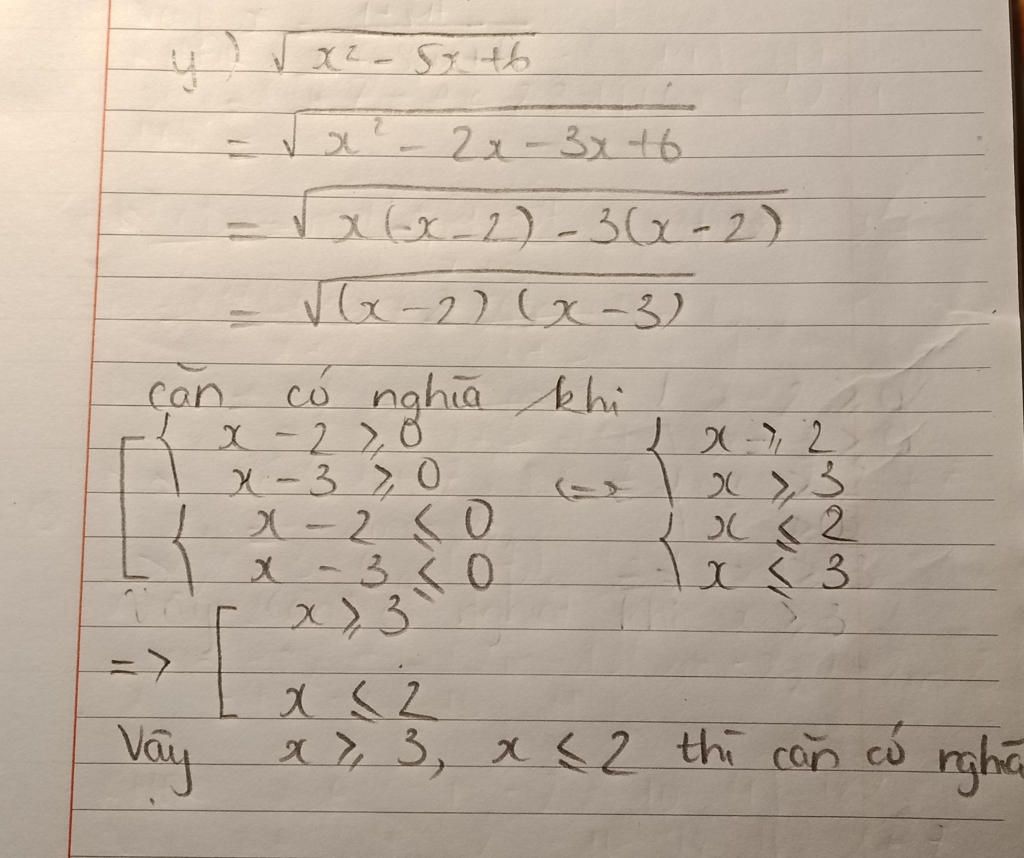 y) √(x² - 5x + 6)
= √(x² - 2x - 3x + 6)
= √(x(x - 2) - 3(x - 2))
= √((x - 2)(x - 3))
căn có nghĩa khi
[ { x - 2 ≥ 0 { x ≥ 2
x - 3 ≥ 0 <=> x ≥ 3
{ x - 2 ≤ 0 { x ≤ 2
x - 3 ≤ 0 x ≤ 3
=> [ x ≥ 3
x ≤ 2
Vậy x ≥ 3, x ≤ 2 thì căn có nghĩa